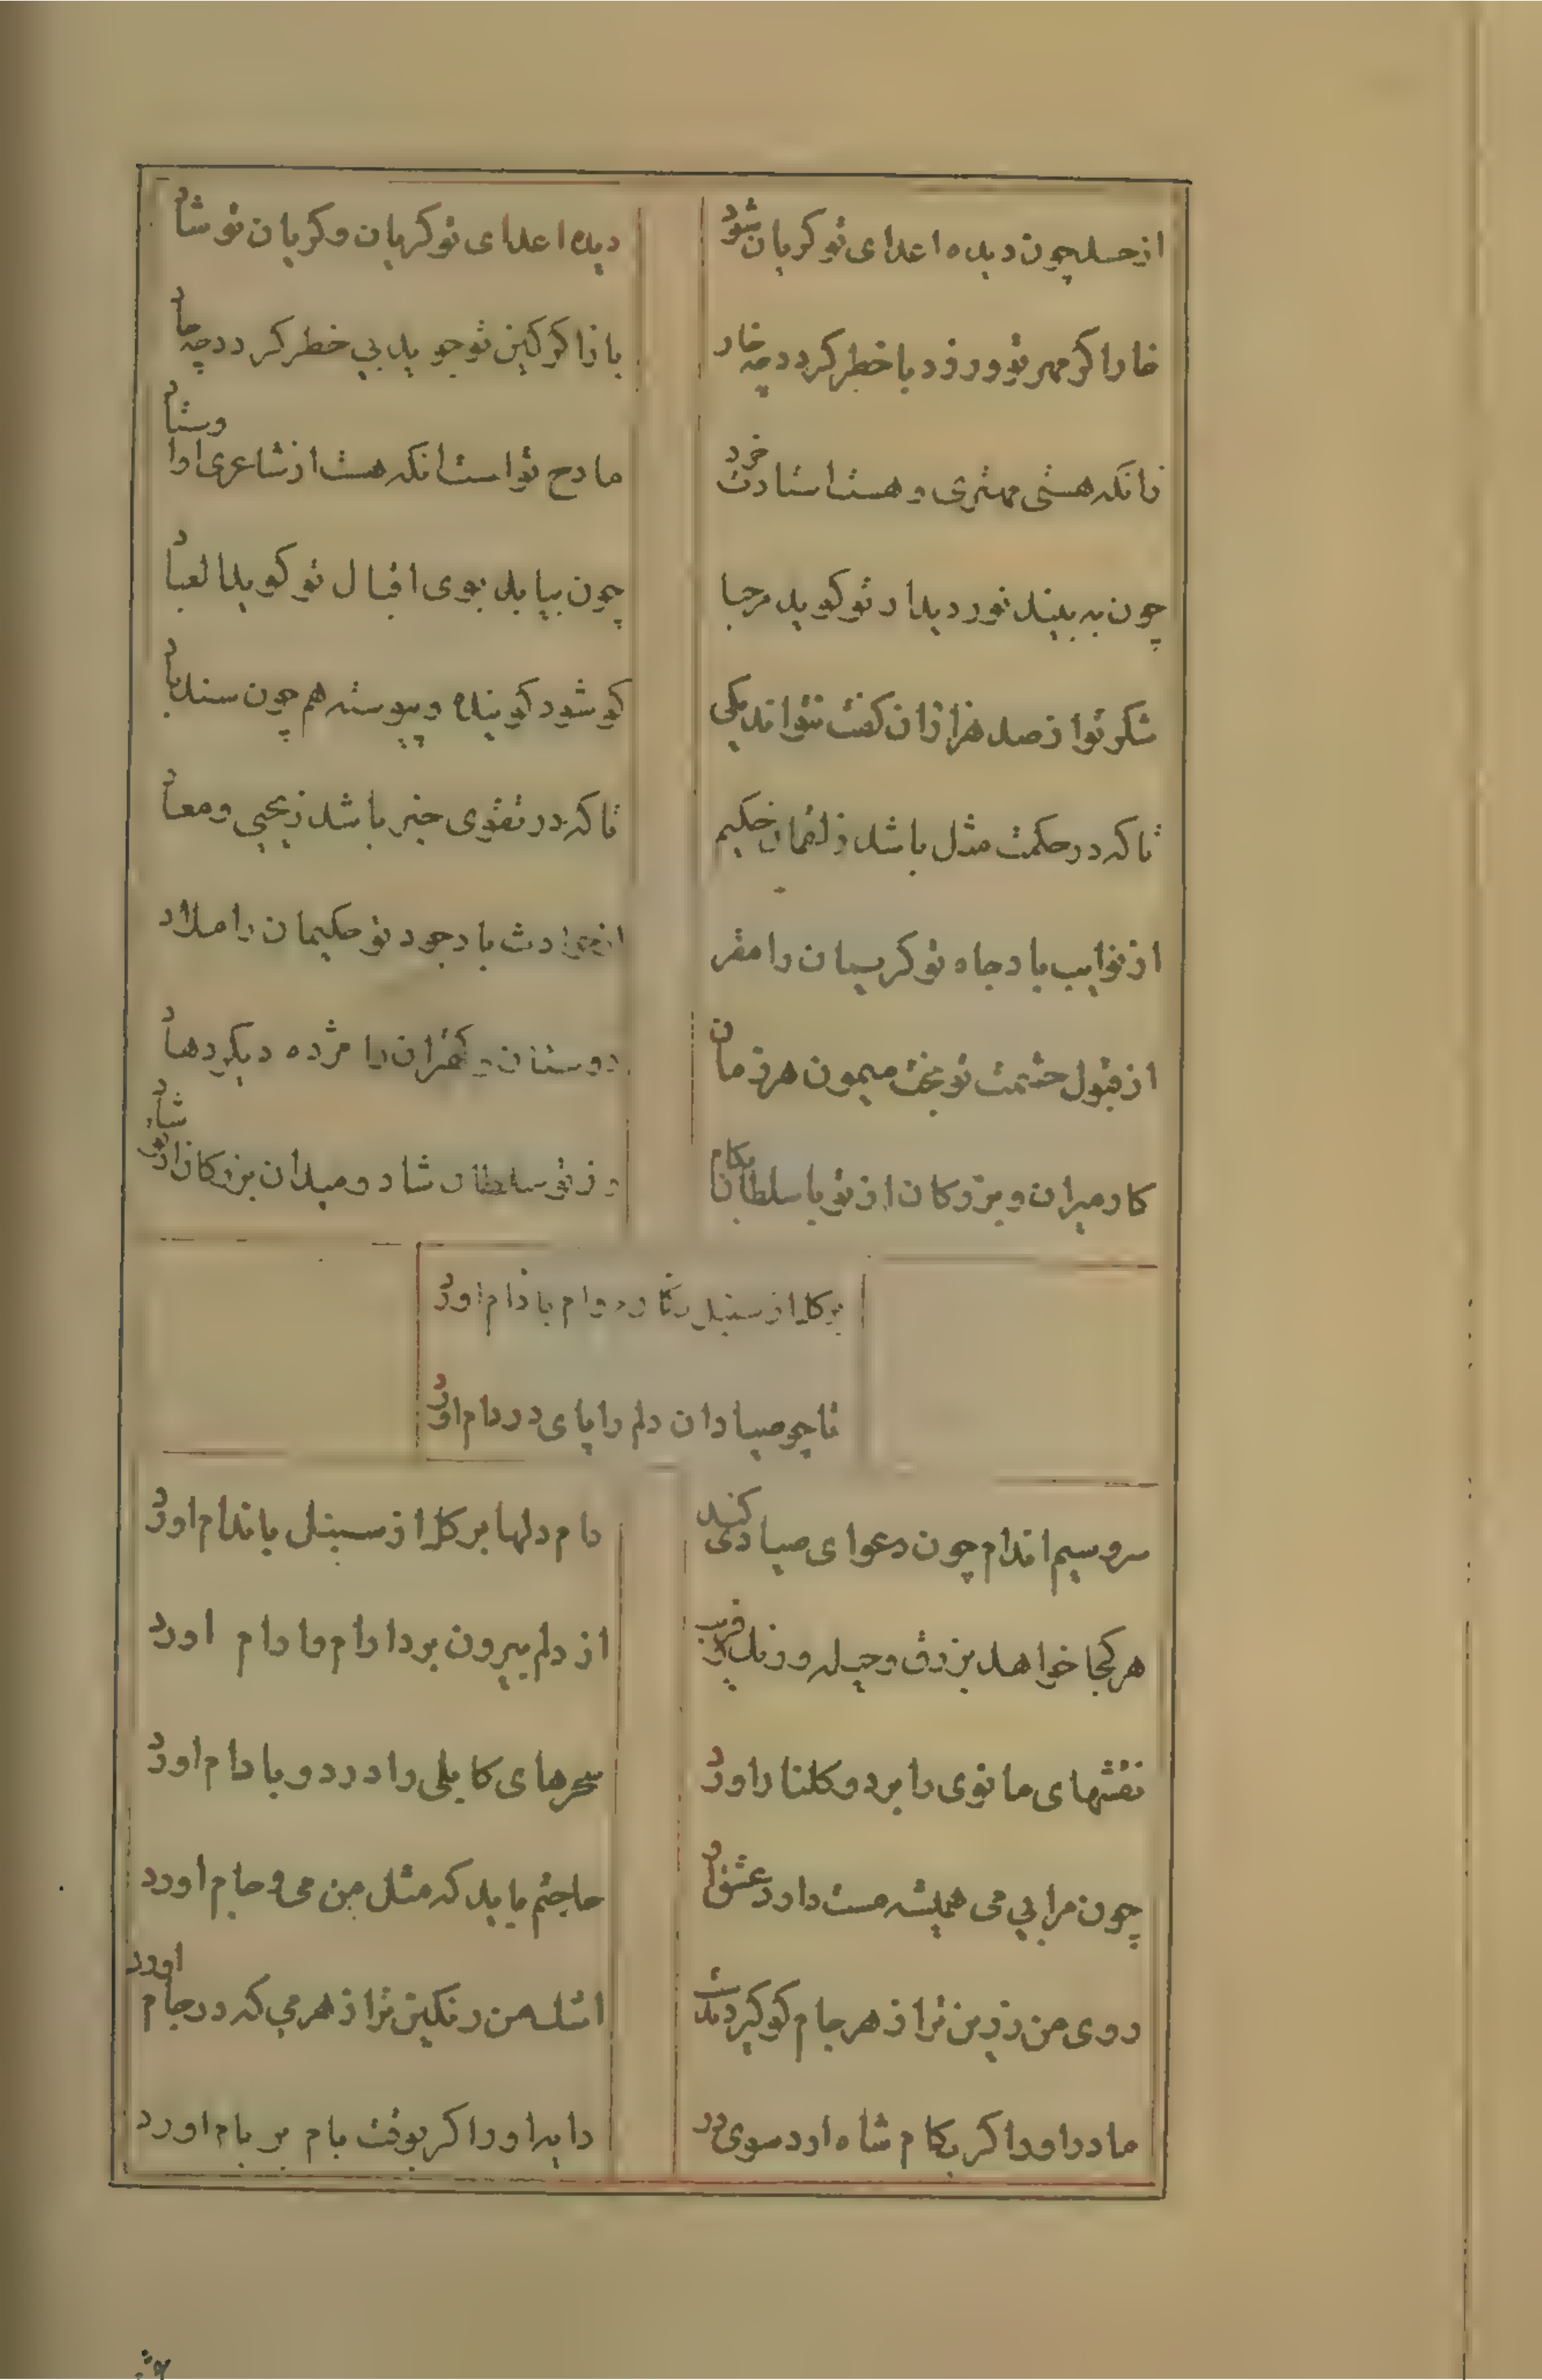 از حسد چون دیده اعدای تو کریان شود
دیده اعدای تو کریان و کریان تو شاد
خار اکر مهر تو ورزد با خطر کردد چه خار
باز اکر کین تو جوید بی خطر کردد چه خاد
زانکه هستی مهتری و هست استادت خرد
مادح تو است انکه هست از شاعری اوستاد
چون به بیند نور دیدار تو کوید مرحبا
چون بیابد بوی اقبال تو کوید العباد
شکر تو از صد هزاران کفت نتواند یکی
کو شود کوینده و پیوسته هم چون سندباد
تا که در حکمت مثل باشد ز لقمان حکیم
تا که در تقوی خبر باشد ز یحیی و معاد
از نوایب باد جاه تو کریمان را مقر
از حوادث باد جود تو حکیمان را ملاد
از قبول حشمت تو بخت میمون هر زمان
دوستان و کهتران را مژده دیکر دهاد
کار میران و بزرکان از تو با سلطان بکام
وز تو سلطان شاد و میدان بزرکان از تو شاد
بر کل از سنبل دام باز دام اورد
تا چو صیادان دلم را پای در دام اورد
سرو سیم اندام چون دعوای صیادی کند
دام دلها بر کل از سنبل باندام اورد
هر کجا خواهد بزرق و حیله و رنک و فریب
از دلم بیرون برد ارام و ما دام اورد
نقشهای مانوی را بر دو کلنار اورد
سحرهای کابلی را در دو بادام اورد
چون مرا بی می همیشه مست دارد عشق او
حاجتم باید که مثل من می و جام اورد
روی من زرین تر از هر جام کو کیرد بدست
اشک من رنکین تر از هر می که در جام اورد
مادر او را کر بکام شاه اورد سوی در
دایه او را کر بوقت بام بر بام اورد